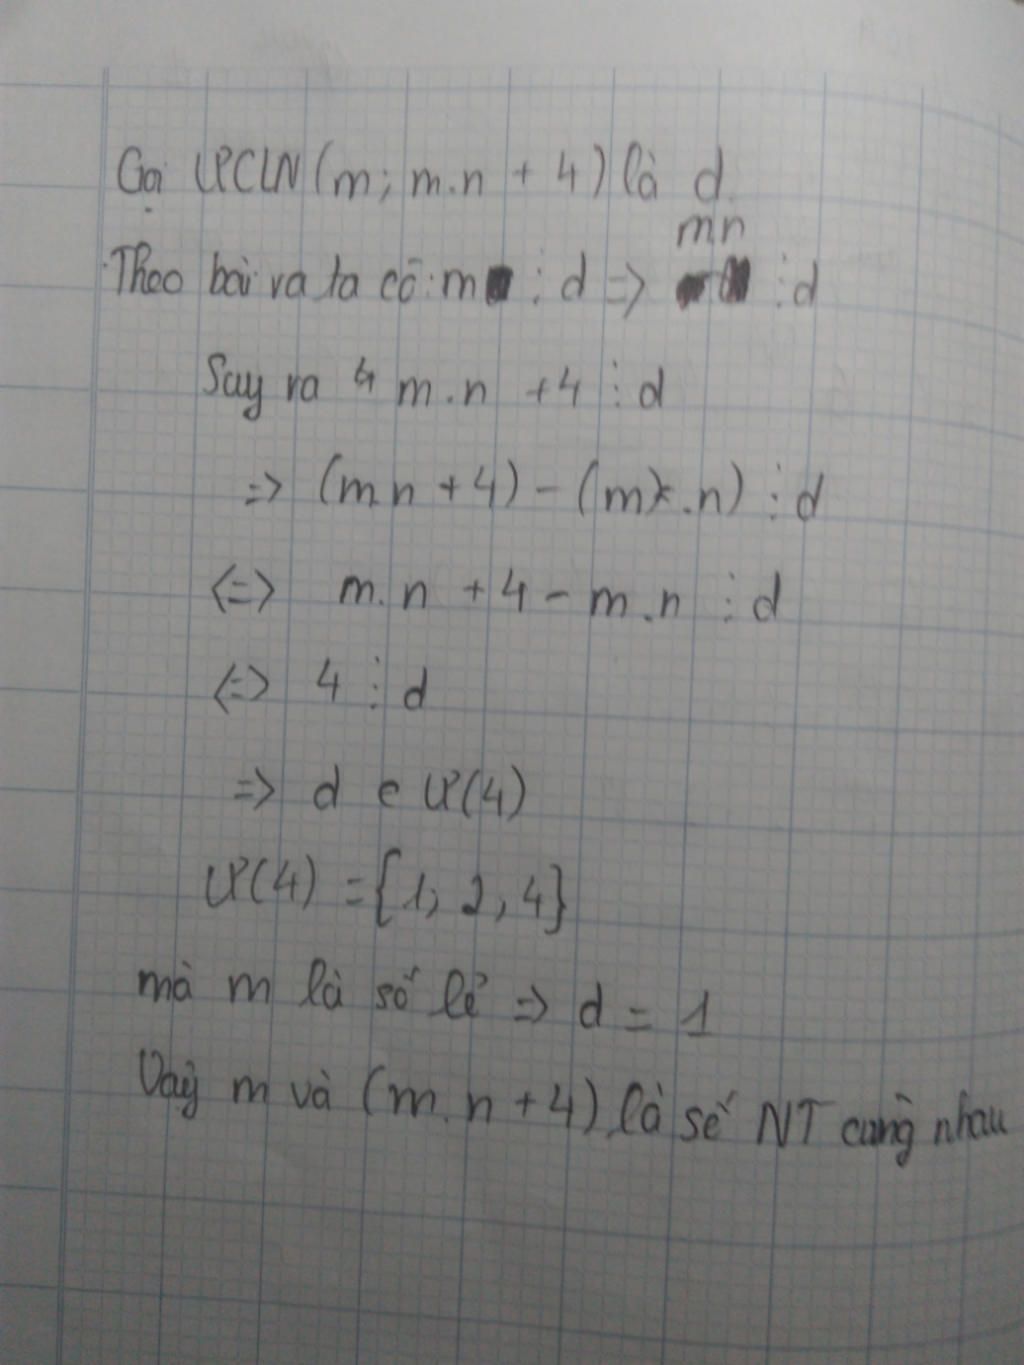 Gọi ƯCLN (m; m.n + 4) là d.
mn
Theo bài ra ta có: m ⋮ d => ⋮ d
Say ra 4 m.n + 4 ⋮ d
=> (m.n + 4) - (m.n) ⋮ d
<=> m.n + 4 - m.n ⋮ d
<=> 4 ⋮ d
=> d e Ư(4)
Ư(4) = {1; 2, 4}
mà m là số lẻ => d = 1
Vậy m và (m.n + 4) là số NT cùng nhau